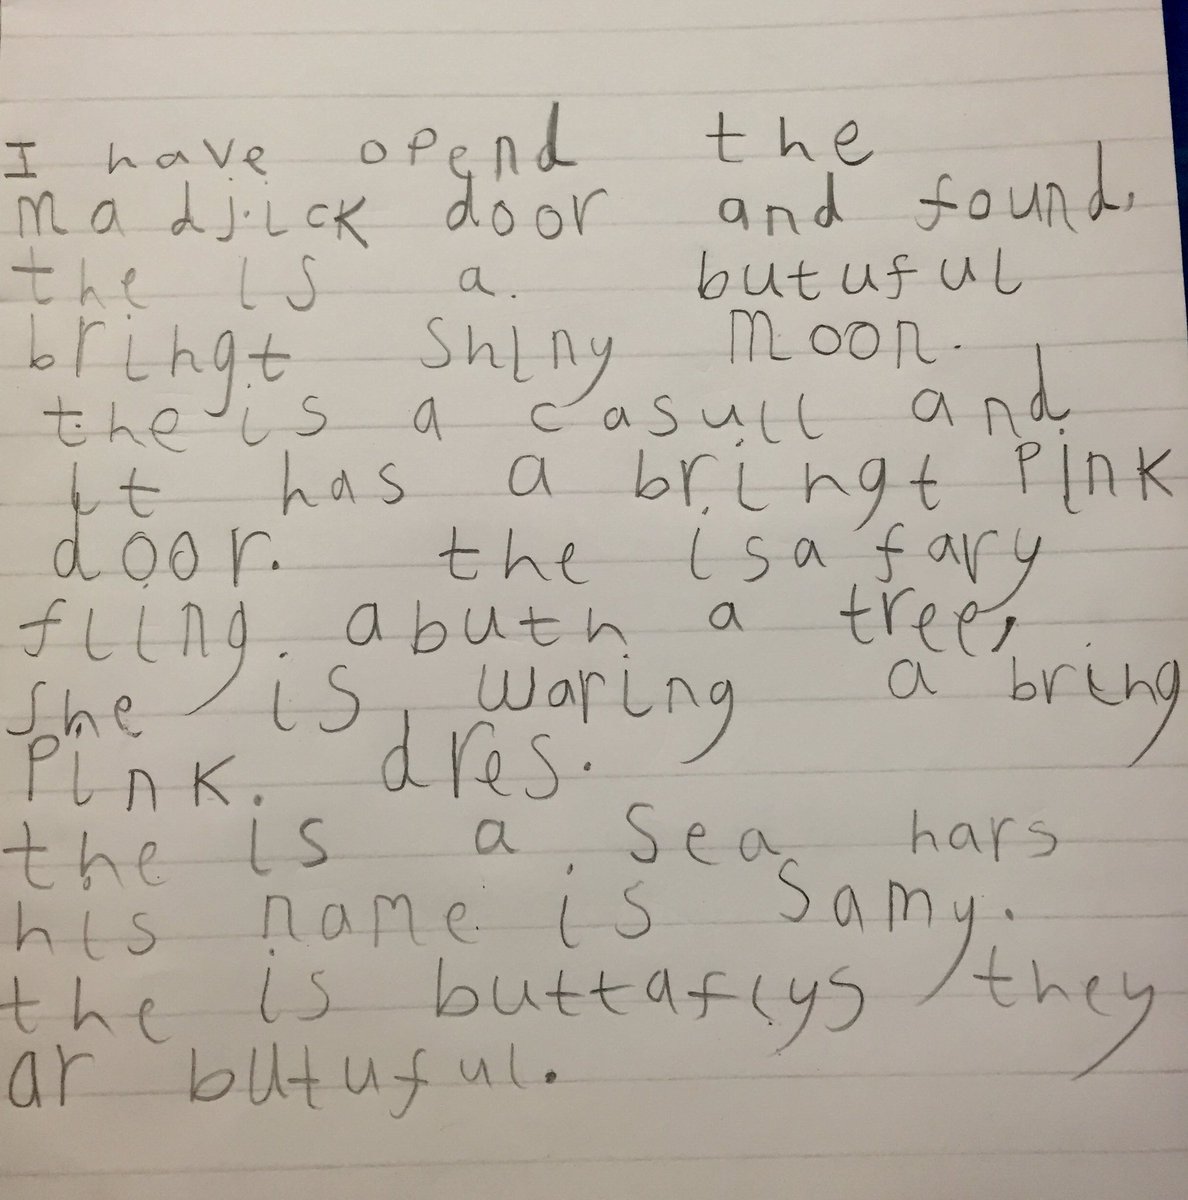 I have opend the
madjick door and found.
the is a. butuful
bringt shiny moon.
the is a casull and
it has a bringt Pink
door. the is a fary
fling. abuth a tree,
she is waring a bring
Pink. dres.
the is a. Sea hars
his name is Samy.
the is buttaflys they
ar butuful.